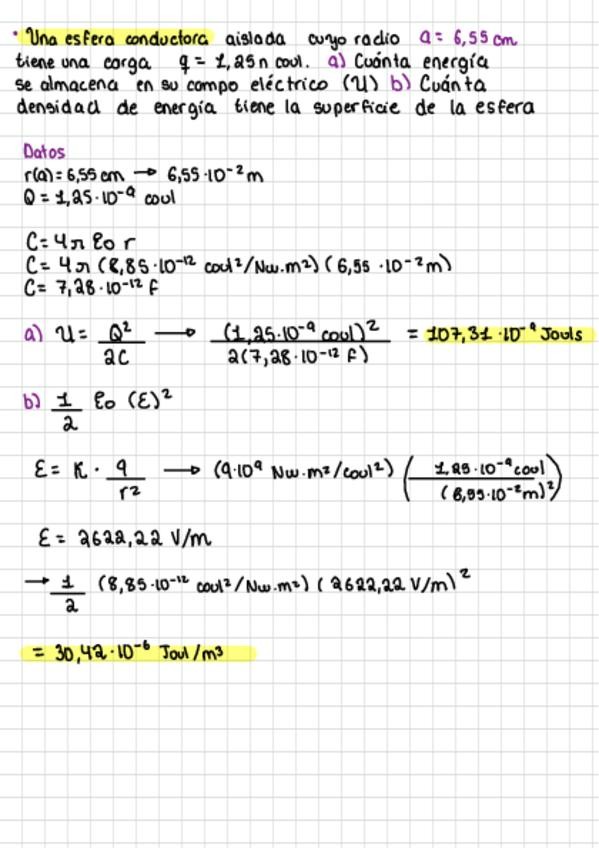 · Una esfera conductora aislada cuyo radio a = 6,55 cm
tiene una carga q = 1,25 n coul. a) Cuánta energía
se almacena en su campo eléctrico (U) b) Cuánta
densidad de energía tiene la superficie de la esfera
Datos
r(a) = 6,55 cm → 6,55·10⁻²m
Q = 1,25·10⁻⁹ coul
C = 4π εo r
C = 4π (8,85·10⁻¹² coul²/Nw.m²) (6,55 ·10⁻²m)
C = 7,28·10⁻¹² f
a) U = Q²/2C → (1,25·10⁻⁹ coul)²/2(7,28·10⁻¹² f) = 107,31 ·10⁻⁹ Jouls
b) 1/2 εo (ε)²
ε = K · q/r² → (9·10⁹ Nw.m²/coul²) (1,25·10⁻⁹ coul/(6,55·10⁻²m)²)
ε = 2622,22 V/m
→ 1/2 (8,85·10⁻¹² coul²/Nw.m²) (2622,22 V/m)²
= 30,42·10⁻⁶ Joul/m³